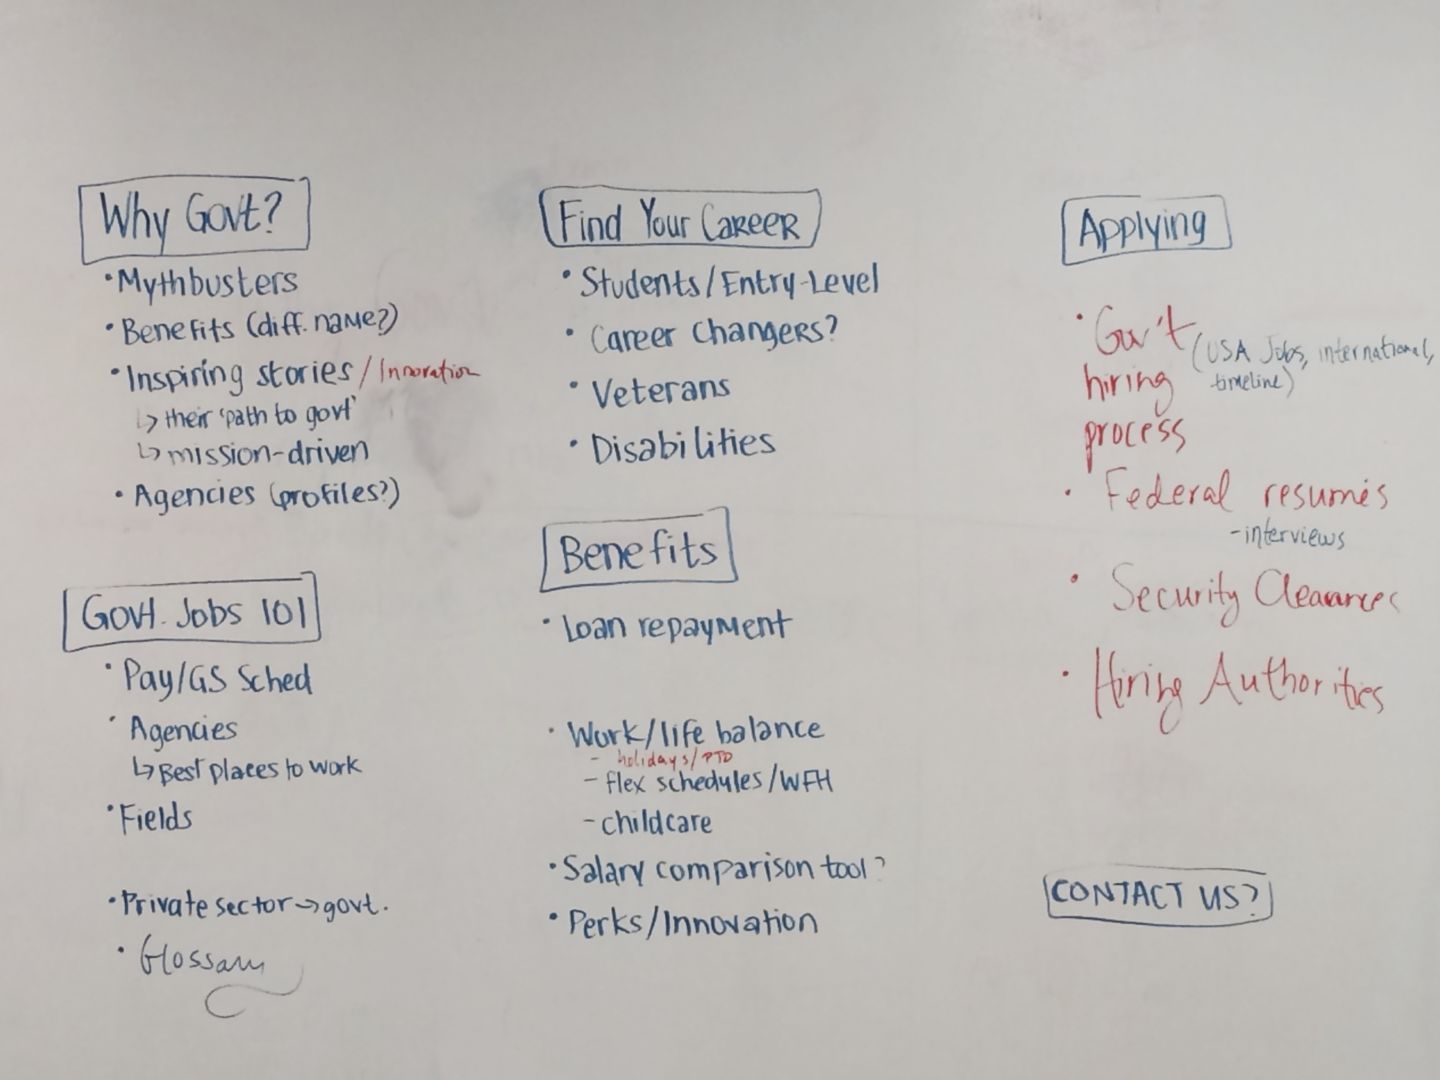 Why Govt?
• Mythbusters
• Benefits (diff. name?)
• Inspiring stories / Innovation
↳ their 'path to govt'
↳ mission-driven
• Agencies (profiles?)
Govt. Jobs 101
• Pay/GS Sched
• Agencies
↳ Best places to work
• Fields
• Private sector → govt.
• Glossary
Find Your Career
• Students/Entry-Level
• Career Changers?
• Veterans
• Disabilities
Benefits
• Loan repayment
• Work/life balance
- holidays/PTO
- flex schedules/WFH
- childcare
• Salary comparison tool?
• Perks/Innovation
Applying
• Gov't (USA Jobs, international,
hiring timeline)
process
• Federal resumés
- interviews
• Security Clearances
• Hiring Authorities
CONTACT US?